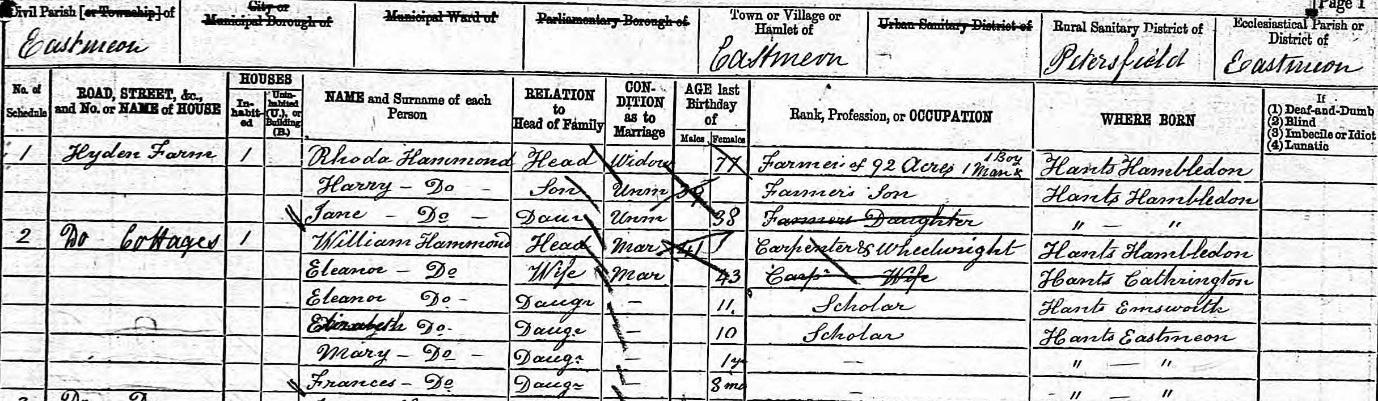 Page 1
Civil Parish [or Township] of
Eastmeon
City or Municipal Borough of
Municipal Ward of
Parliamentary Borough of
Town or Village or Hamlet of
Eastmeon
Urban Sanitary District of
Rural Sanitary District of
Petersfield
Ecclesiastical Parish or District of
Eastmeon
No. of Schedule
ROAD, STREET, &c., and No. or NAME of HOUSE
HOUSES
In-habit-ed
Unin-habited (U.), or Building (B.)
NAME and Surname of each Person
RELATION to Head of Family
CON-DITION as to Marriage
AGE last Birthday of
Males
Females
Rank, Profession, or OCCUPATION
WHERE BORN
If
(1) Deaf-and-Dumb
(2) Blind
(3) Imbecile or Idiot
(4) Lunatic
1 Hyden Farm 1 Rhoda Hammond Head Widow 77 Farmer of 92 Acres 1 Man & 1 Boy Hants Hambledon
Harry - Do - Son Unm 39 Farmer's Son Hants Hambledon
Jane - Do - Daur Unm 38 Farmers Daughter " - "
2 Do Cottages 1 William Hammond Head Mar 41 Carpenter & Wheelwright Hants Hambledon
Eleanor - Do Wife Mar 43 Carpr Wife Hants Cathrington
Eleanor Do - Daugr - 11 Scholar Hants Emsworth
Elizabeth Do - Daugr - 10 Scholar Hants Eastmeon
Mary - Do - Daugr - 1y - " - "
Frances - Do Daugr - 8 mo " - "